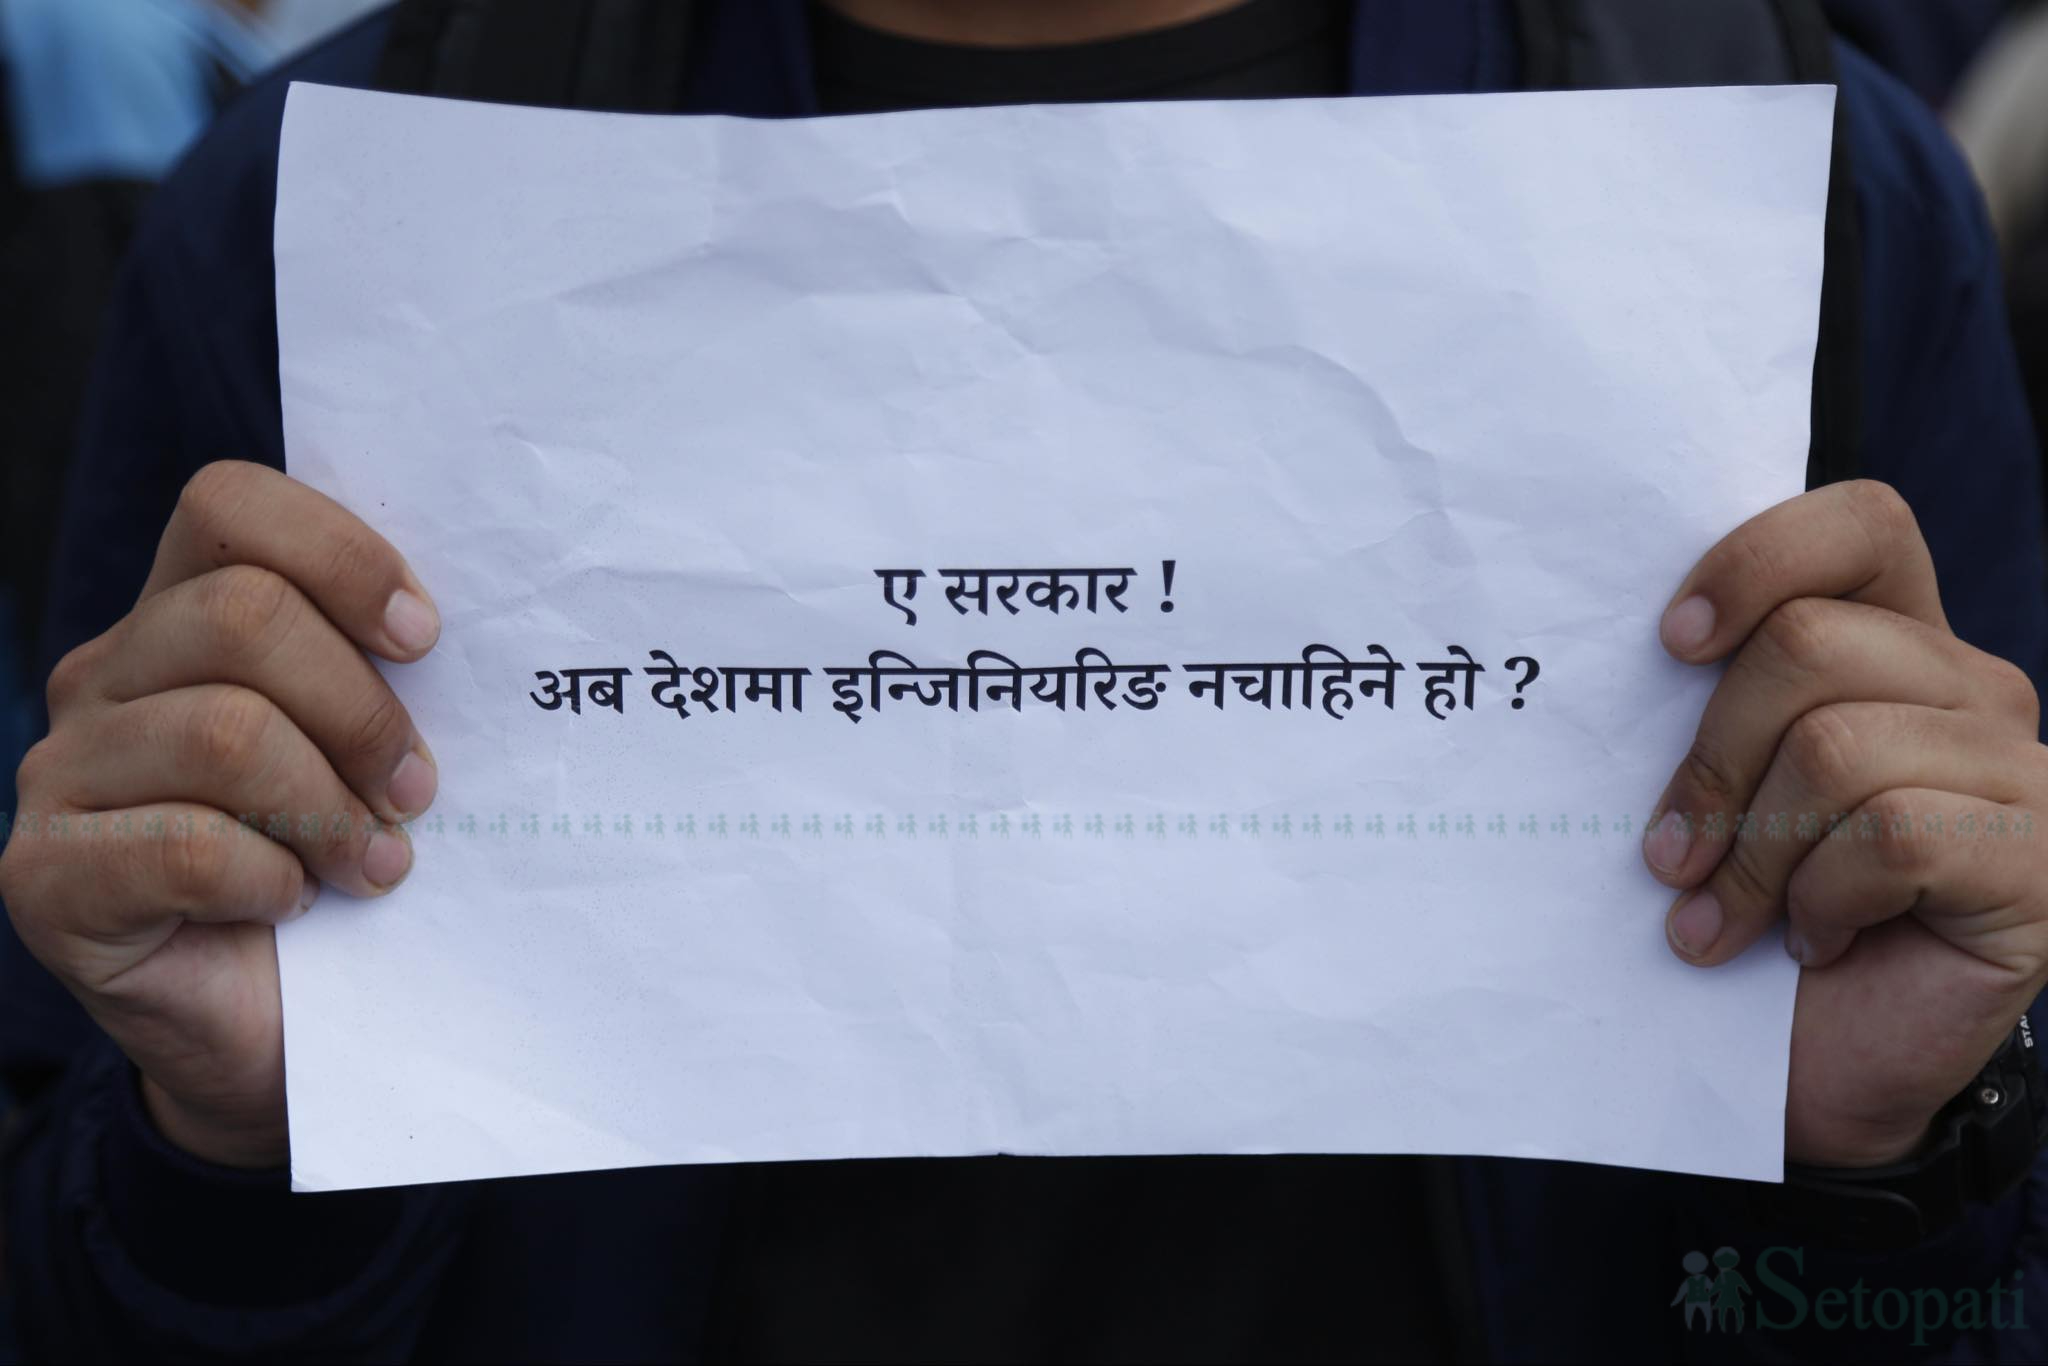 ए सरकार !
अब देशमा इन्जिनियरिङ नचाहिने हो ?
Setopati